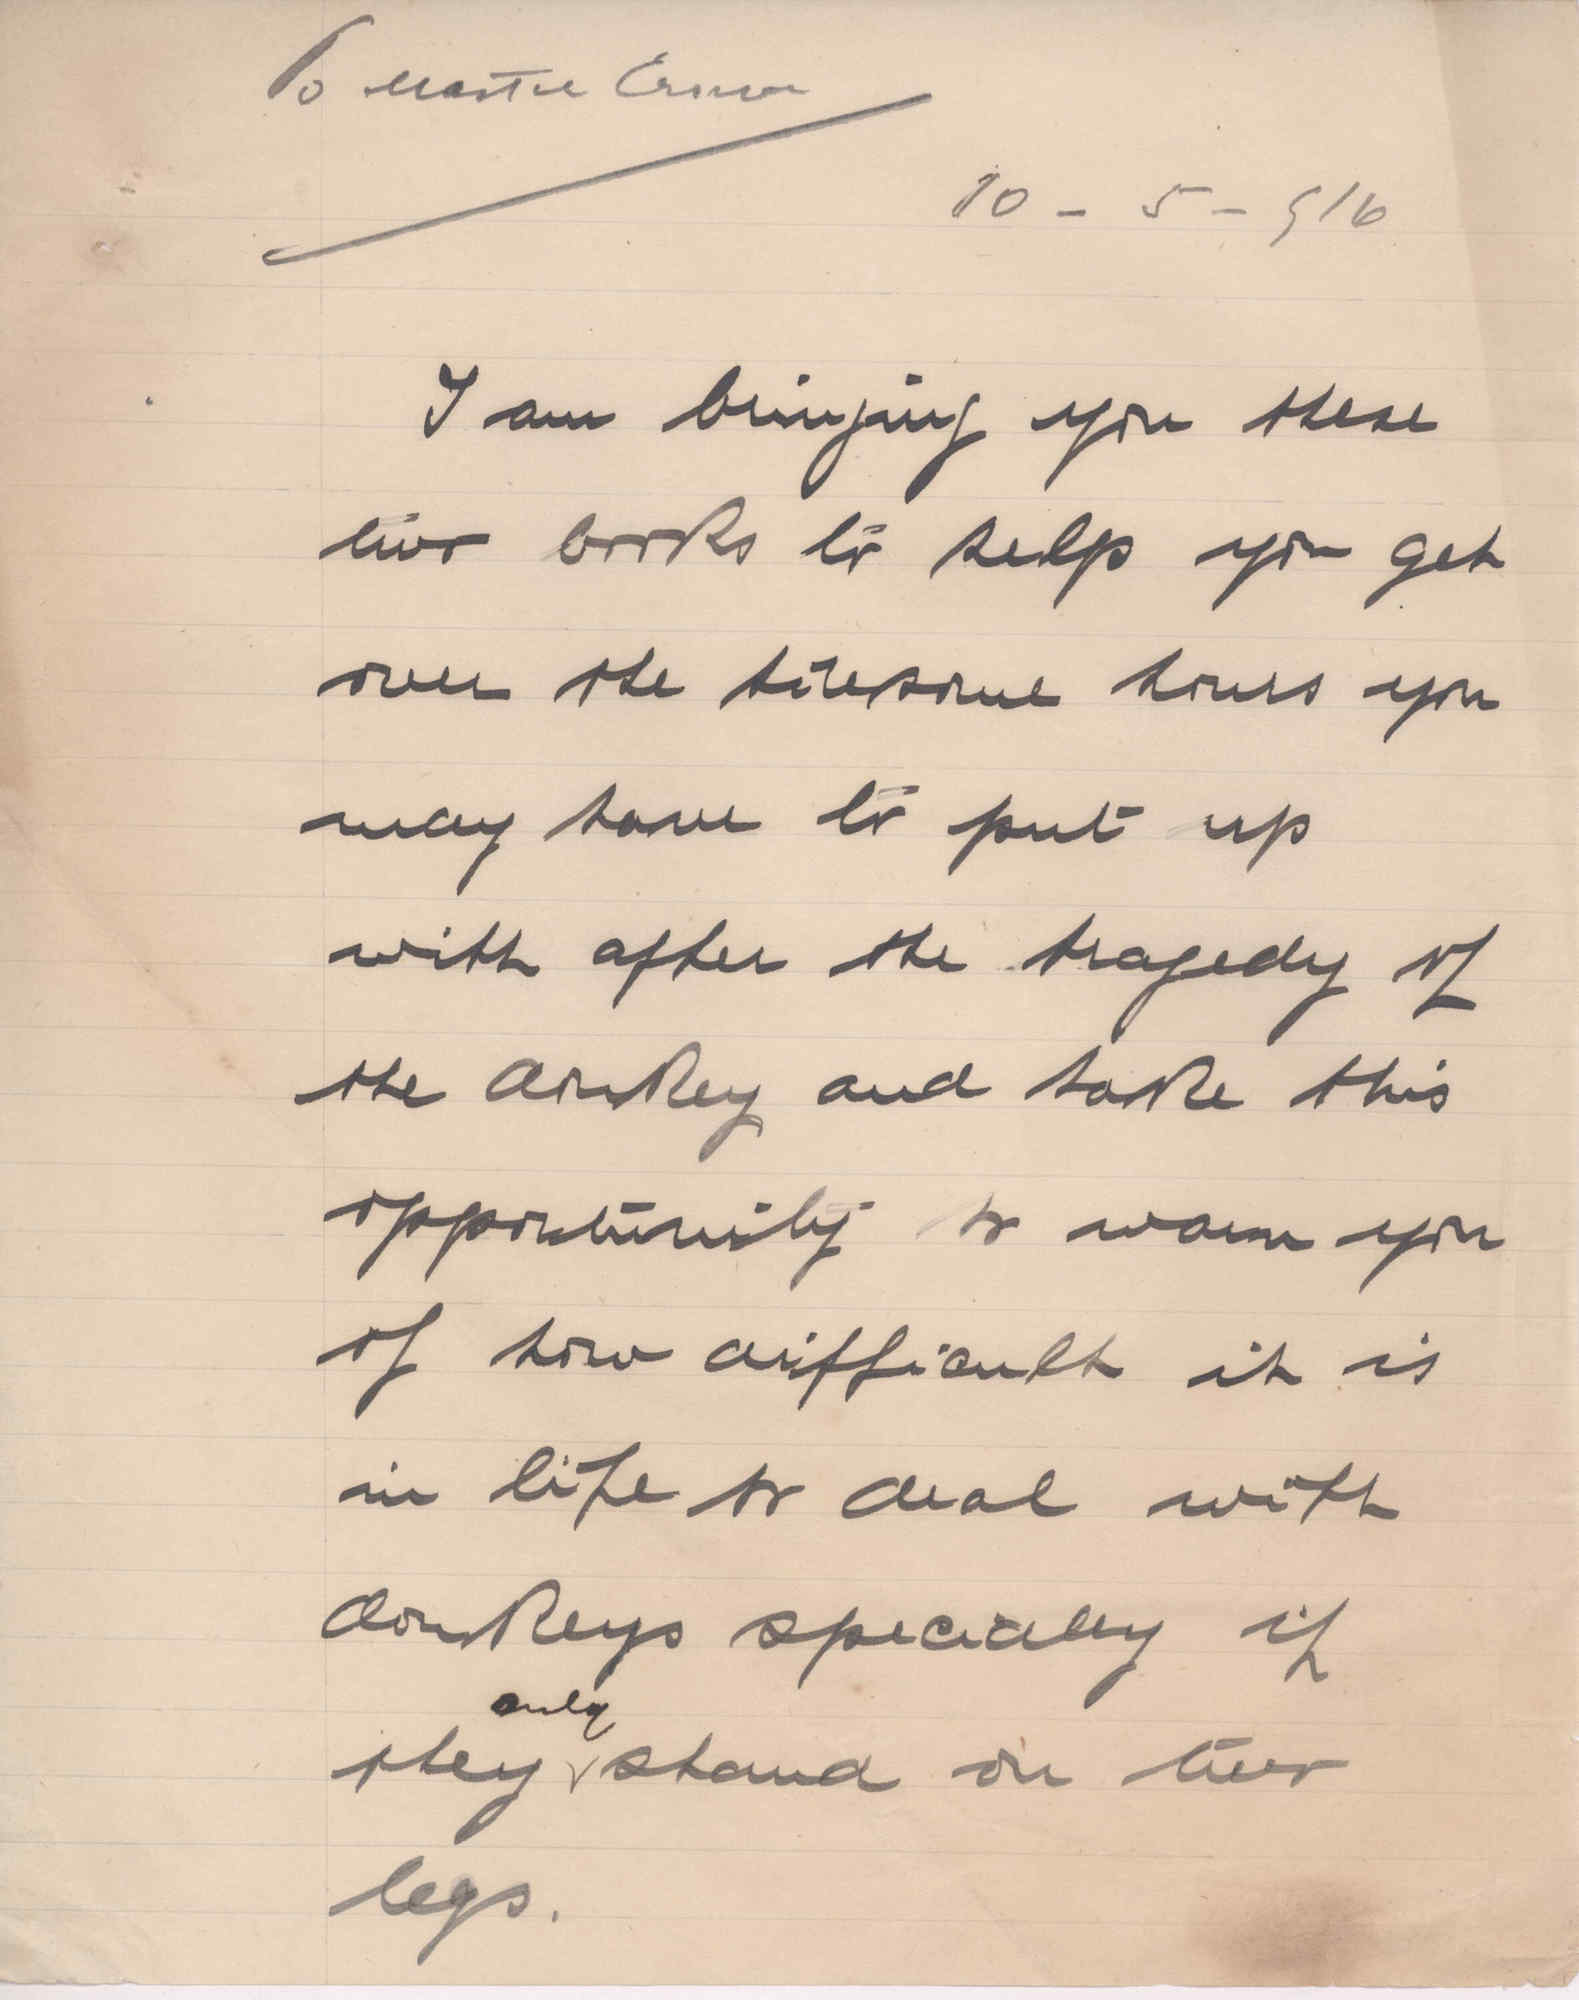 To Master
10 - 5 - 916
I am bringing you these
two books to help you get
over the tiresome hours you
may have to put up
with after the tragedy of
the donkey and take this
opportunity to warn you
of how difficult it is
in life to deal with
donkeys specially if
only
they stand on two
legs.